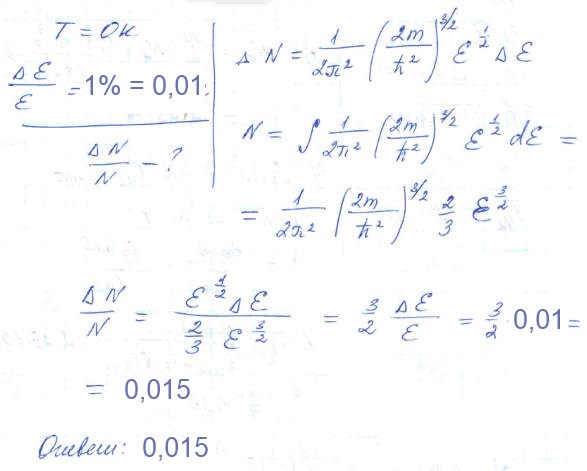 T = 0K
ΔE/E = 1% = 0,01
ΔN/N - ?
ΔN = 1/2π² (2m/ħ²)^3/2 E^1/2 ΔE
N = ∫ 1/2π² (2m/ħ²)^3/2 E^1/2 dE =
= 1/2π² (2m/ħ²)^3/2 2/3 E^3/2
ΔN/N = E^1/2 ΔE / 2/3 E^3/2 = 3/2 ΔE/E = 3/2 · 0,01 =
= 0,015
Ответ: 0,015